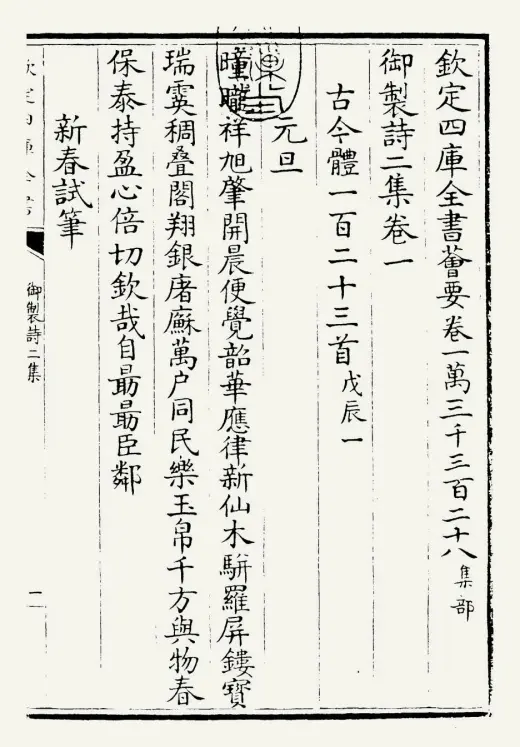 欽定四庫全書薈要卷一萬三千三百二十八集部
御製詩二集卷一
古今體一百二十三首戊辰一
元旦
曈曨祥旭肇開晨便覺韶華應律新仙木駢羅屏鏤寶
瑞霙稠疊閣翔銀屠蘇萬户同民樂玉帛千方與物春
保泰持盈心倍切欽哉自朂朂臣鄰
新春試筆
欽定四庫全書
御製詩二集